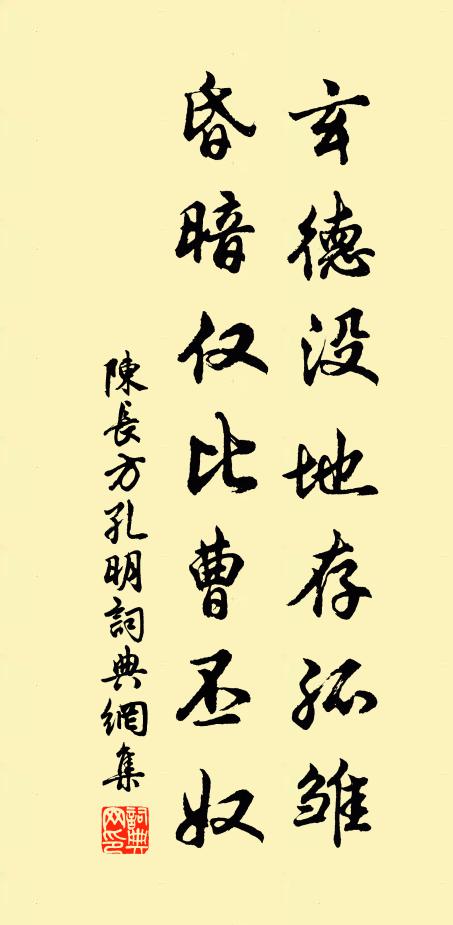 玄德没地存孤雏
昏暗仅比曹丕奴
陳長方孔明詞典網集
詞典网印